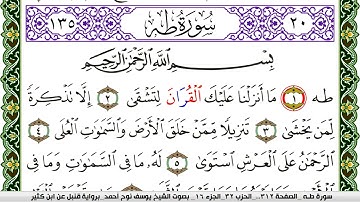 ٢٠ سُورَةُ طه ١٣٥
بِسْمِ ٱللَّهِ ٱلرَّحْمَٰنِ ٱلرَّحِيمِ
طه ١ مَآ أَنزَلْنَا عَلَيْكَ ٱلْقُرَانَ لِتَشْقَىٰٓ ٢ إِلَّا تَذْكِرَةً
لِّمَن يَخْشَىٰ ٣ تَنزِيلًا مِّمَّنْ خَلَقَ ٱلْأَرْضَ وَٱلسَّمَٰوَٰتِ ٱلْعُلَى ٤
ٱلرَّحْمَٰنُ عَلَى ٱلْعَرْشِ ٱسْتَوَىٰ ٥ لَهُۥ مَا فِى ٱلسَّمَٰوَٰتِ وَمَا فِى
سورة طه_ الصفحة ٣١٢_ الحزب ٣٢_الجزء ١٦_ بصوت الشيخ يوسف نوح أحمد_ برواية قنبل عن ابن كثير